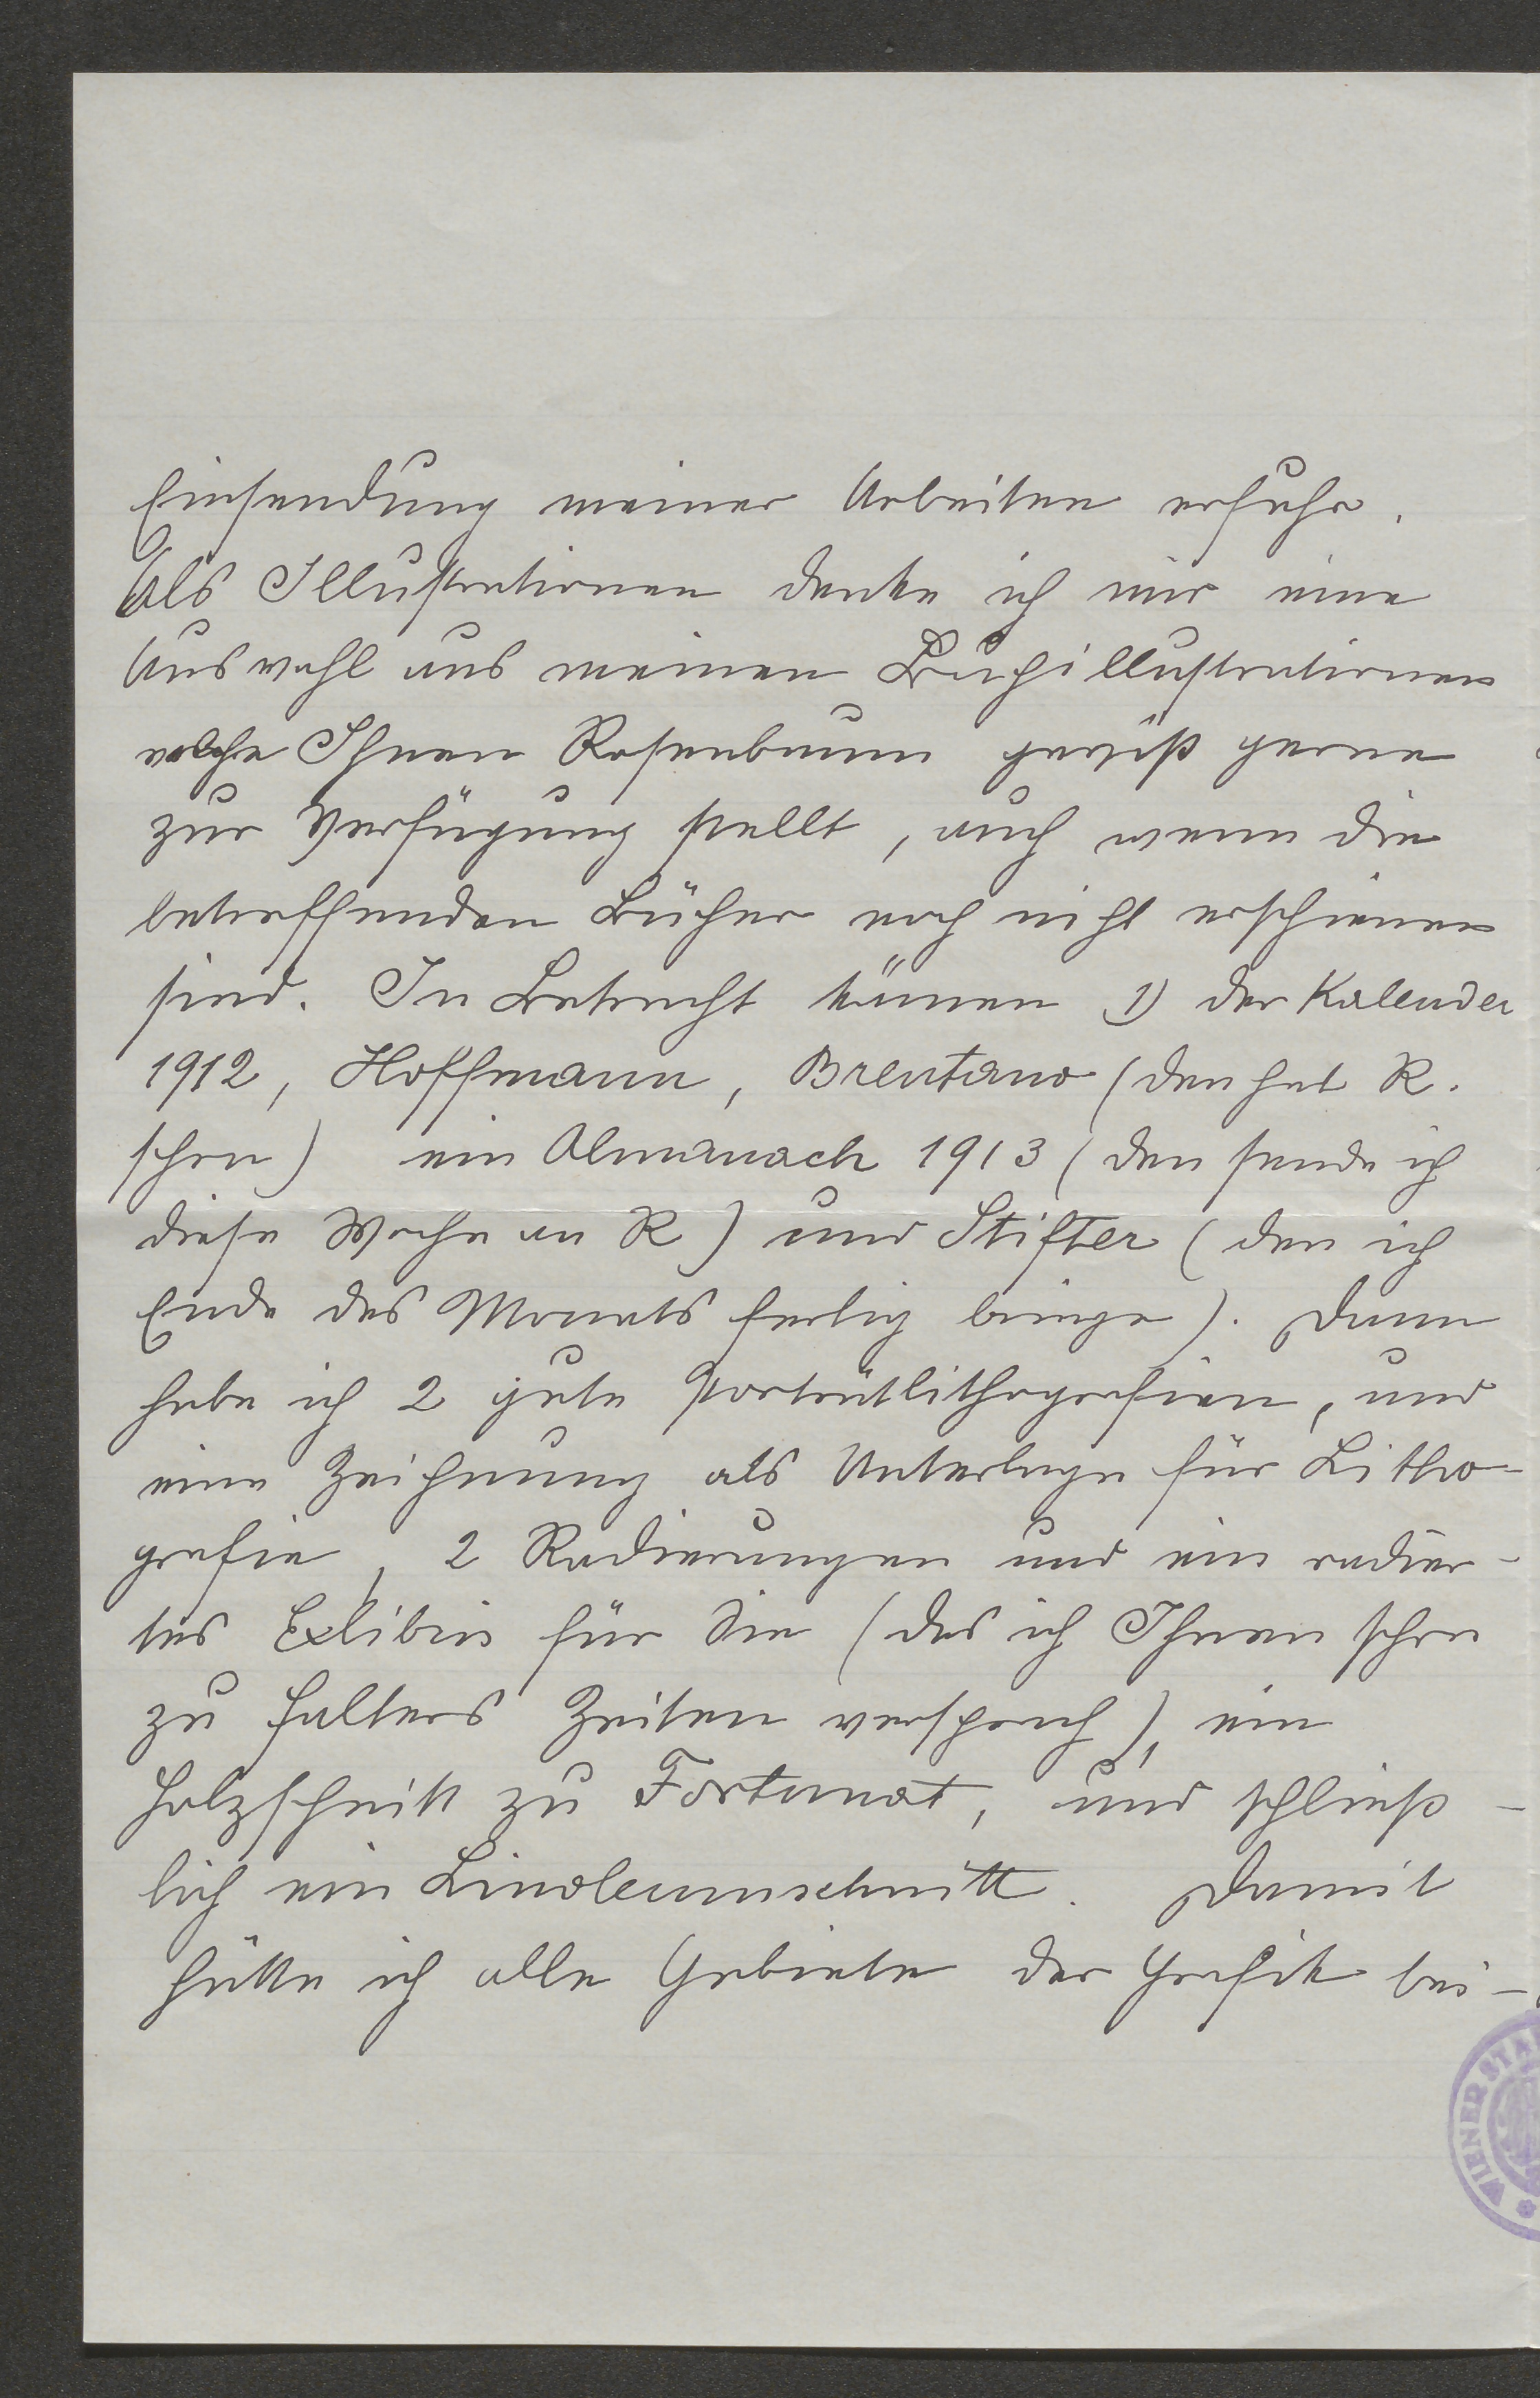 Einsendung meiner Arbeiten erfuhr.
Als Illustrationen denke ich mir eine
Auswahl aus meinen Buchillustrationen
welche Ihnen Rosenbaum gewiß gerne
zur Verfügung stellt, auch wenn die
betreffenden Bücher noch nicht erschienen
sind. In Betracht kämen 1) der Kalender
1912, Hoffmann, Brentano (den hat R.
schon) ein Almanach 1913 (den sende ich
diese Woche an R) und Stifter (den ich
Ende des Monats fertig bringe). Dann
habe ich 2 gute Porträtlithografien, und
eine Zeichnung als Unterlage für Litho-
grafie, 2 Radierungen und ein radier-
tes Exlibris für Sie (das ich Ihnen schon
zu Halters Zeiten versprach), ein
Holzschnitt zu Fortunat, und schließ-
lich ein Linoleumschnitt. Damit
hätte ich alle Gebiete der Grafik bei-
WIENER STA